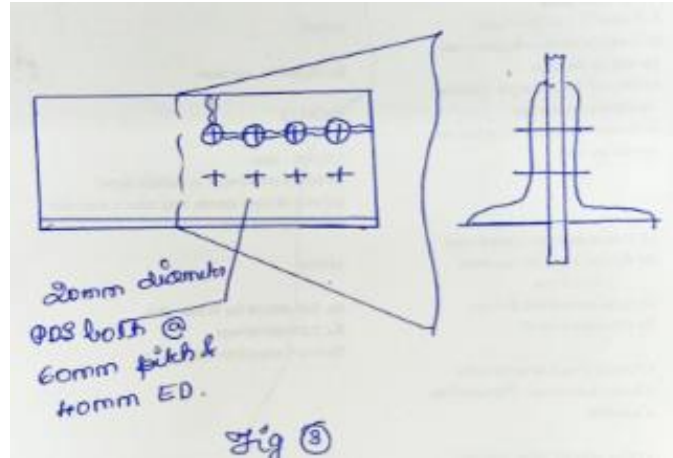 20mm diameter
PDS bolts @
60mm pitch &
40mm ED.
Fig 3